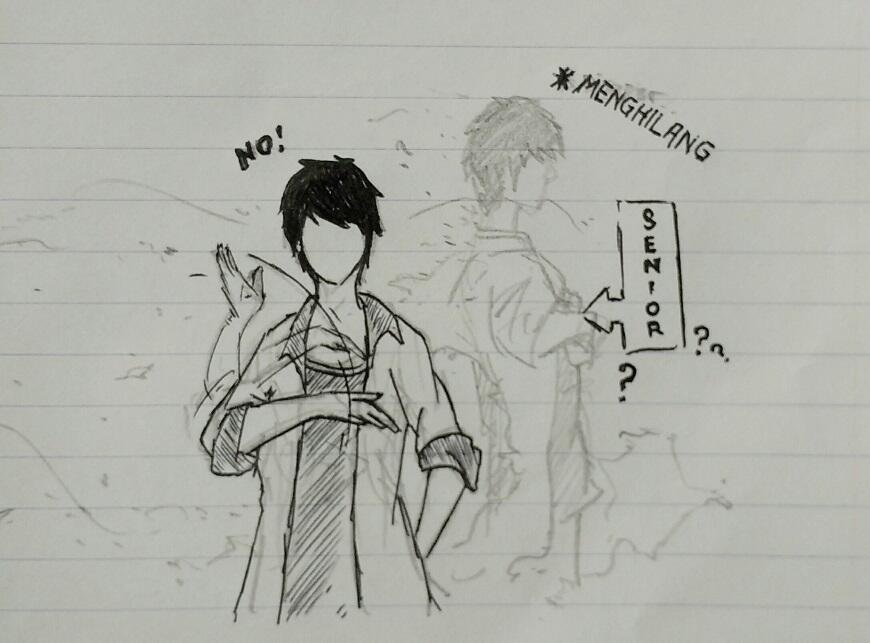 *MENGHILANG
NO!
SENIOR
?
??